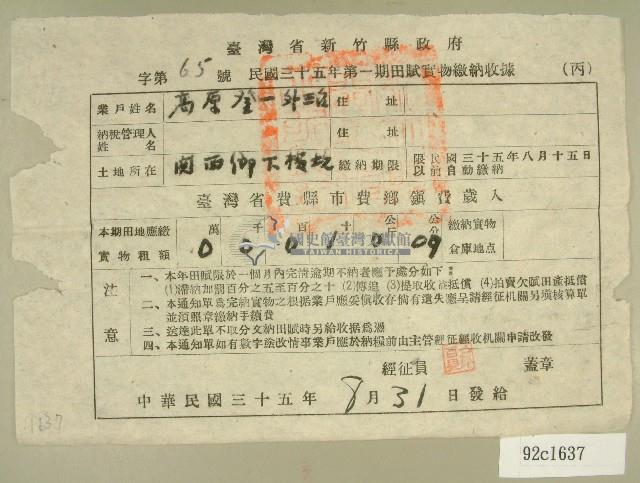 臺灣省新竹縣政府
字第 65 號 民國三十五年第一期田賦實物繳納收據 (丙)
業戶姓名 高原登一外三名 住址
納稅管理人姓名 住址
土地所在 関西鄉下橫坑 繳納期限 限民國三十五年八月十五日以前自動繳納
臺灣省費縣市費鄉鎮費歲入
本期田地應繳實物租額 萬 千 百 十 公斤 公分 繳納實物倉庫地点
0 0 0 1 0 09
國史館臺灣文獻館
TAIWAN HISTORICA
注意
一、本年田賦限於一個月內完清逾期不納者應予處分如下
(1)滯納加罰百分之五至百分之十 (2)傳追 (3)提取收益抵償 (4)拍賣欠賦田產抵償
二、本通知單為完納實物之根据業戶應妥慎收存倘有遺失應呈請經征机關另填核算單
並須照章繳納手續費
三、送達此單不取分文納田賦時另給收据為憑
四、本通知單如有數字塗改情事業戶應於納糧前由主管經征經收机關申請改發
經征員 蓋章
中華民國三十五年 8 月 31 日發給
1637
92c1637